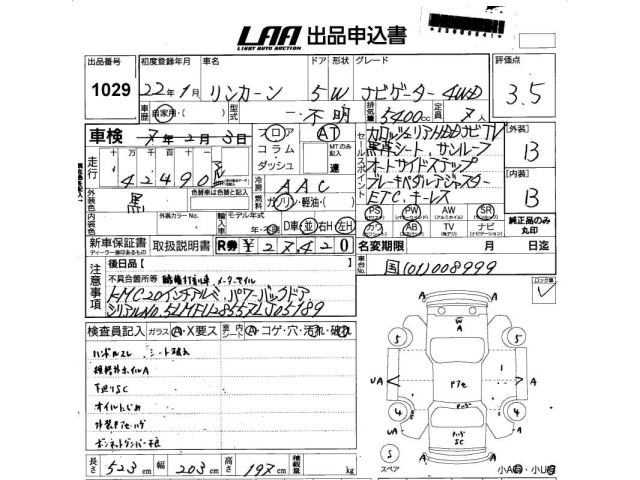 LAA 出品申込書
LIGHT AUTO AUCTION
出品番号 初度登録年月 車名 ドア 形状 グレード 評価点
1029 22年1月 リンカーン 5 W ナビゲーター 4WD 3.5
車歴 自家用・( ) 型式 不明 排気量 5400cc 定員 7人
車検 7年2月3日 フロア AT
コラム MTのみ記入
ダッシュ 速
セールスポイント
カロッツェリアHDDナビTV
黒革シート、サンルーフ
オートサイドステップ
ブレーキペダルアジャスター
ETC、キーレス
【外装】 B
【内装】 B
走行 十万 万 千 百 十
42490
冷房 AAC
燃料 ガソリン・軽油・( )
外装色 黒 色替車は色替と記入
内装色 外装カラーNo. 輸入車 モデル年式
年・不明 D車 並 右H 左H
PS PW AW SR
カワ AB TV ナビ
純正品のみ丸印
新車保証書 取扱説明書 R券 ¥27420 名変期限 月 日迄
ディーラー印のあるもの
後日品【 】
車台No. 国(01)008999
注意事項
不具合箇所等 職権打刻車、メーターマイル
HMC20インチアルミ、パワーバックドア
シリアルNO.5LMFU28557LJ05789
ロック有
検査員記入 ガラス A・X要ス 室内シート A コゲ・穴・汚れ・破れ
ハンドルスレ シート破れ
下廻りSC
オイルにじみ
A
W
A
5 5
UA A P7セ 1 A
4 4
UA A
SC
S
スペア
長さ 523cm 幅 203cm 高さ 197cm 積載量 kg
小A 小U